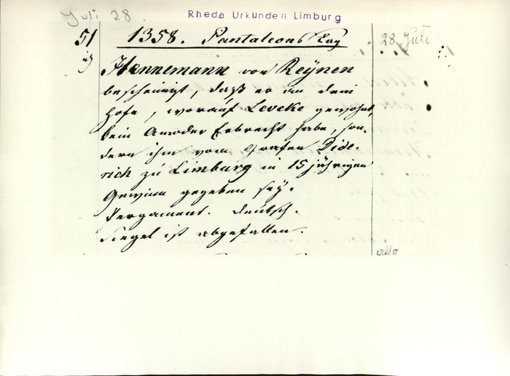 Juli 28
Rheda Urkunden Limburg
51
1358. Pantaleons Tag
28. Juli
Hannemann von Reynen
bescheinigt, daß er an dem
Hofe, worauf Leveke gewohnt,
kein Erbrecht habe, son-
dern ihm vom Grafen Dide-
rich zu Limburg in 15jährigen
Gewinn gegeben sey.
Pergament. Deutsch.
Siegel ist abgefallen.